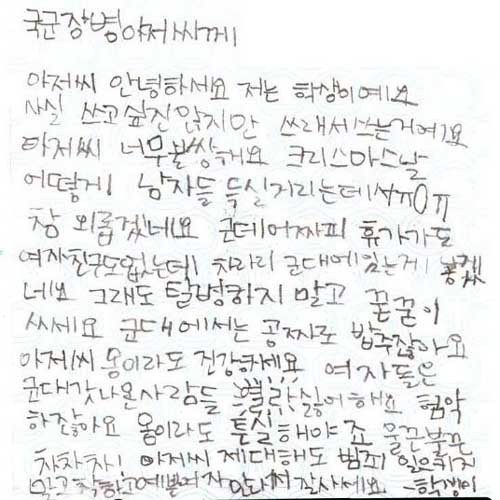 국군장병아저씨께
아저씨 안녕하세요 저는 학생이예요
사실 쓰고싶진않지만 쓰래서쓰는거에요
아저씨 너무불쌍해요 크리스마스날
어떻게 남자들 득실거리는데서ㅠ0ㅠ
참 외롭겠네요 군데어짜피 휴가가도
여자친구도없는데 차라리 군대에있는게 낳겠
네요 그래도 탈병하지 말고 꾿꾿이
싸세요 군대에서는 공짜로 밥주잖아요
아저씨 몽이라도 건강하세요 여자들은
군대갓나온사람들 별라싫어해요 험악
하잖아요 몽이라도 튼실해야죠 울끈불끈
차차차! 아저씨 제대해도 범죄 일으키지
말고 착하고예쁜여자 만나서 잘사세요 -학생이